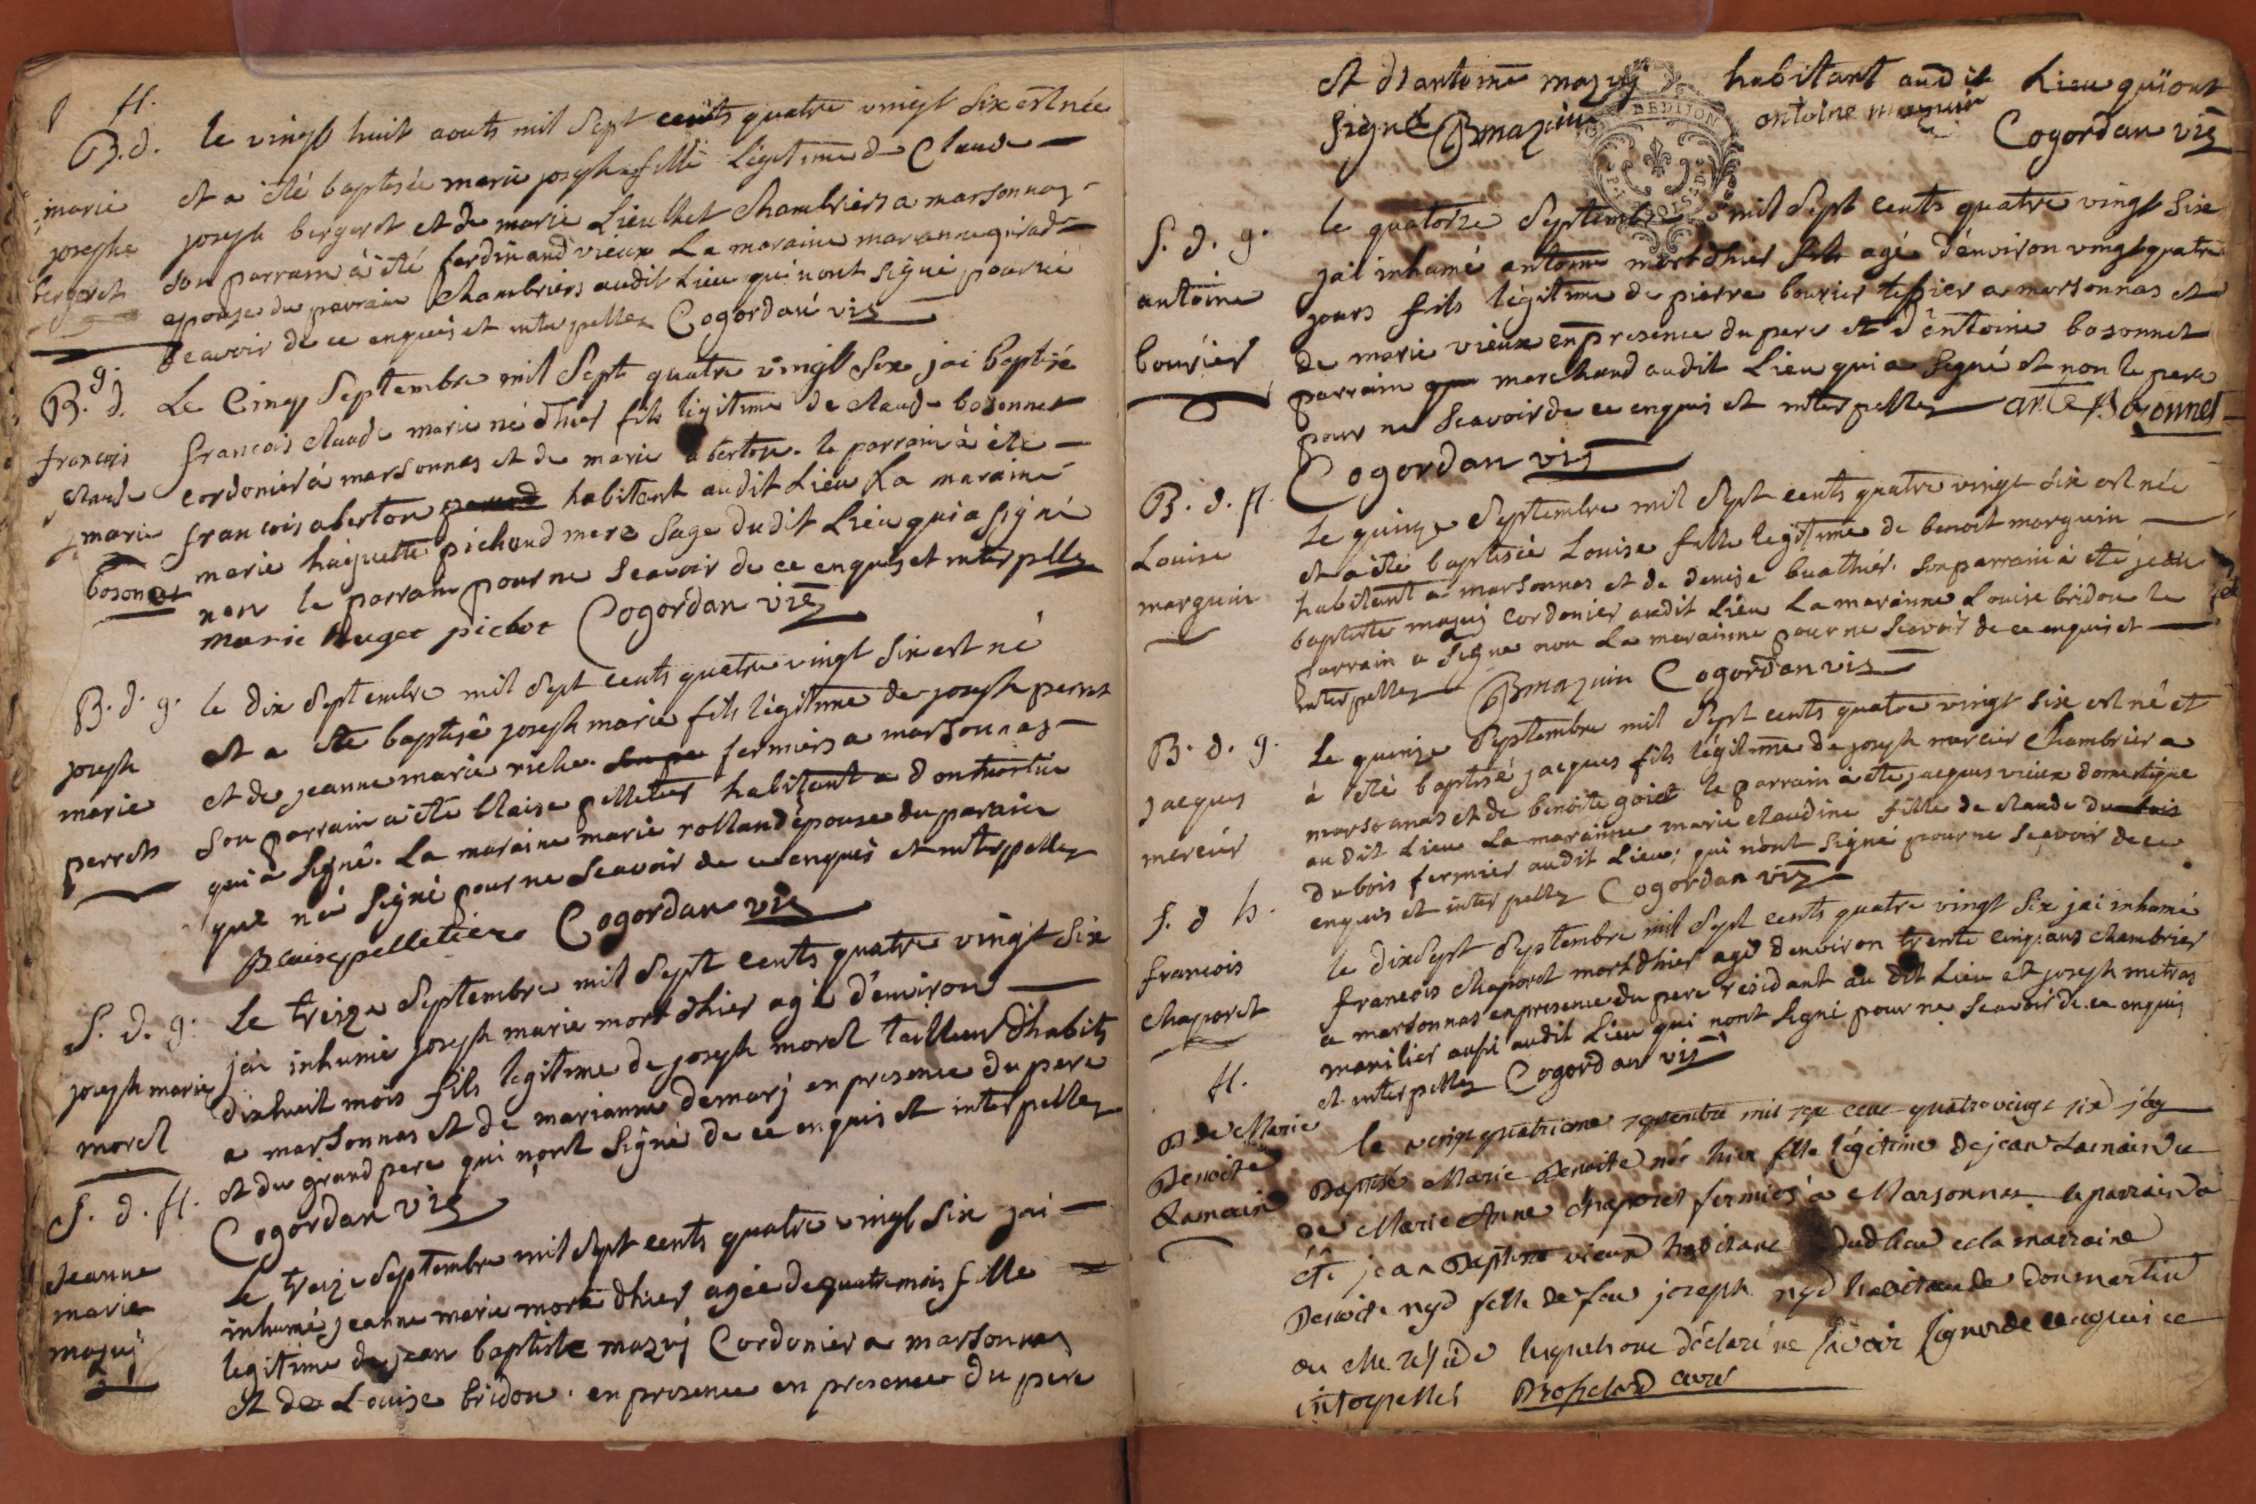 B. d. f.
marie
josephe
bergeret
le vingt huit aouts mil Sept cents quatre vingt Six est née
et a été baptisée marie josephe fille légitime de Claude
joseph bergeret et de marie Lieulhet Chambriers a marsonnaz
son parrain à été ferdinand vieux La maraine marianne girad
epouse du parrain Chambriers audit Lieu qui nont signé pour ne
sçavoir de ce enquis et interpellez Cogordan vic
B. d. g.
françois
claude
marie
bosonet
Le Cinq Septembre mil Sept quatre vingt Six jai baptisé
francois claude marie né d'hier fils légitime de claude bosonnet
cordonier à marsonnas et de marie aberton. le parrain à été
francois aberton habitant audit Lieu La maraine
marie huguette pichoud mere Sage dudit Lieu qui a signé
non le parrain pour ne sçavoir de ce enquis et interpellez
marie huget pichot Cogordan vic
B. d. g.
joseph
marie
perret
le dix Septembre mil Sept cents quatre vingt Six est né
et a été baptisé joseph marie fils légitime de joseph perret
et de jeanne marie riche. fermiers a marsonnas
Son parrain a été blaise pelletier habitant a dontmartin
qui à signé. La maraine marie rolland épouse du parain
qui né signé pour ne sçavoir de ce enquis et interpellez
Blaise pelletier Cogordan vic
S. d. g.
joseph marie
morel
Le treize Septembre mil Sept cents quatre vingt Six
jai inhumé joseph marie mort d'hier agé d'environ
dixhuit mois fils légitime de joseph morel tailleur d'habits
a marsonnas et de marianne demarj en presence du pere
et du grand pere qui n'ont signé de ce enquis et interpellez
Cogordan vic
S. d. f.
Jeanne
marie
mazuj
Le treize Septembre mil Sept cents quatre vingt Six jai
inhumé jeanne marie morte d'hier agée de quatre mois fille
legitime de jean baptiste mazuj Cordonier a marsonnas
et de Louise bridon. en presence en presence du pere
et d'antoine mazuj habitant audit Lieu qui ont
signé B mazuin antoine mazuin Cogordan vic
S. d. g.
antoine
bourier
le quatorze Septembre mil Sept cents quatre vingt Six
jai inhumé antoine mort d'hier fils agé d'environ vingt quatre
jours fils légitime de pierre bourier tissier a marsonnas et
de marie vieux en presence du pere et d'entoine bosonnet
parrain marchand audit Lieu qui a signé et non le pere
pour ne sçavoir de ce enquis et interpellez ant Bosonnet
Cogordan vic
B. d. f.
Louise
marguin
Le quinze Septembre mil Sept cents quatre vingt Six est née
et a été baptisée Louise fille legitime de benoit marguin
habitant a marsonnas et de denise buathier. Son parrain à été jean
baptiste mazuj Cordonier audit Lieu La maraine Louise bridon le
parrain a signe non La marainne pour ne sçavoir de ce enquis et
interpellez B mazuin Cogordan vic
B. d. g.
jacques
mercier
Le quinze Septembre mil Sept cents quatre vingt Six est né et
à été baptisé jacques fils légitime de joseph mercier Chambrier a
marsonnas et de benoite goiet le parrain à été jacques vieux domestique
audit Lieu La marainne marie claudine fille de claude dubois
dubois fermier audit Lieu; qui n'ont signé pour ne sçavoir de ce
enquis et interpellez Cogordan vic
S. d. h.
francois
chaparet
le dixSept Septembre mil Sept cents quatre vingt Six jai inhumé
francois chaparet mort d'hier agé d'environ trente cinq ans chambrier
a marsonnas en presence du pere residant au dit Lieu et joseph metras
manilier aussi audit Lieu qui nont signé pour ne sçavoir de ce enquis
et interpellez Cogordan vic
f.
B de Marie
Benoite
Lamain
le vingt quatrieme septembre mil sept cent quatre vingt six j'ay
Baptisé Marie Benoite née hier fille légitime de jean Lamain et
de Marie Anne chaparet fermier à Marsonnas le parrain a
été jean Baptiste vieux habitant dudit lieu et la marraine
Benoite nyd fille de feu joseph nyd habitant de Donmartin
ou elle reside lesquels ont déclaré ne sçavoir signer de ce enquis et
interpellés Brossard curé